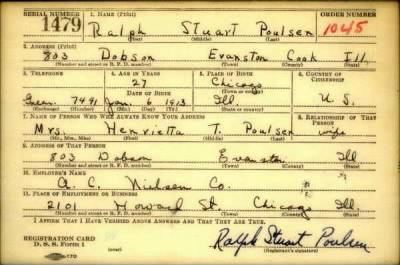 SERIAL NUMBER 1. NAME (Print) ORDER NUMBER
1479 Ralph Stuart Poulsen 1045
(First) (Middle) (Last)
2. ADDRESS (Print)
803 Dobson Evanston Cook Ill.
(Number and street or R. F. D. number) (Town) (County) (State)
3. TELEPHONE 4. AGE IN YEARS 5. PLACE OF BIRTH 6. COUNTRY OF CITIZENSHIP
27 Chicago
DATE OF BIRTH (Town or county)
7491 Jan. 6 1913 Ill U.S.
(Exchange) (Number) (Mo.) (Day) (Yr.) (State or country)
7. NAME OF PERSON WHO WILL ALWAYS KNOW YOUR ADDRESS 8. RELATIONSHIP OF THAT PERSON
Mrs. Henrietta T. Poulsen wife
(Mr., Mrs., Miss) (First) (Middle) (Last)
9. ADDRESS OF THAT PERSON
803 Dobson Evanston Ill
(Number and street or R. F. D. number) (Town) (County) (State)
10. EMPLOYER'S NAME
A. C. Nielsen Co.
11. PLACE OF EMPLOYMENT OR BUSINESS
2101 Howard St. Chicago Ill.
(Number and street or R. F. D. number) (Town) (County) (State)
I AFFIRM THAT I HAVE VERIFIED ABOVE ANSWERS AND THAT THEY ARE TRUE.
REGISTRATION CARD
D. S. S. Form 1 (over) Ralph Stuart Poulsen
(Registrant's signature)